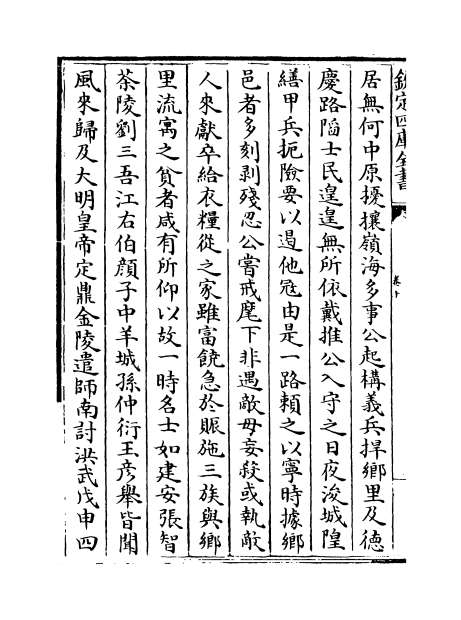 欽定四庫全書
卷十
居無何中原擾攘嶺海多事公起構義兵捍鄉里及德
慶路陷士民遑遑無所依戴推公入守之日夜浚城隍
繕甲兵扼險要以遏他冦由是一路賴之以寧時據鄉
邑者多刻剥殘忍公嘗戒麾下非遇敵毋妄殺或執敵
人來獻卒給衣糧從之家雖富饒急於賑施三族與鄉
里流寓之貧者咸有所仰以故一時名士如建安張智
荼陵劉三吾江右伯顔子中羊城孫仲衍王彦舉皆聞
風來歸及大明皇帝定鼎金陵遣師南討洪武戊申四